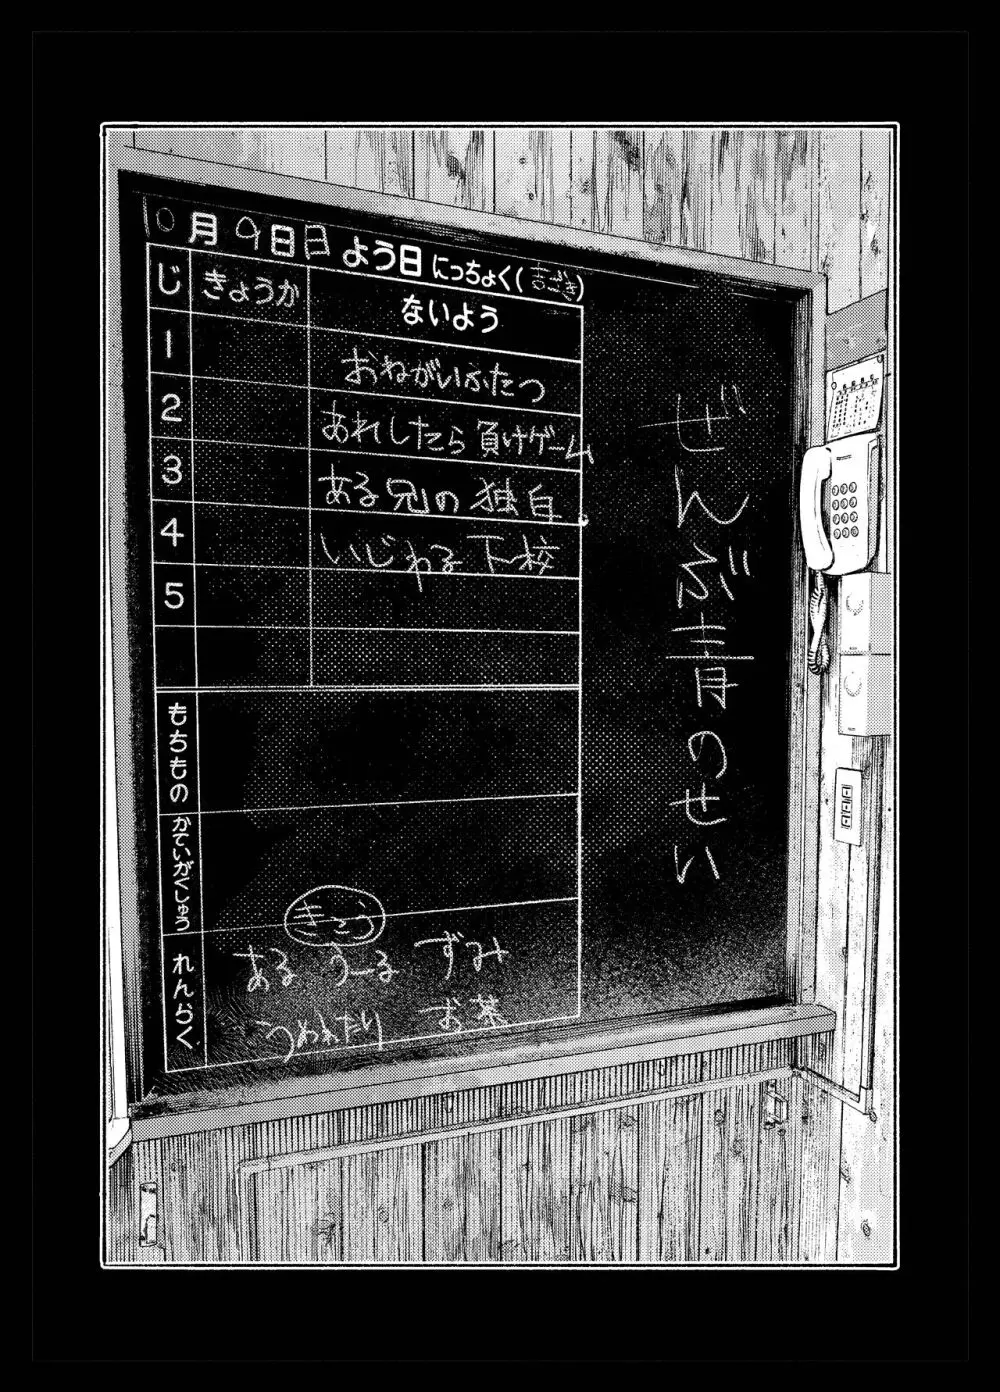 10月9日日よう日 にっちょく(きごき)
じ きょうか ないよう
1 おねがいふたつ
2 あれしたら負けゲーム
3 ある兄の独白。
4 いじわる下校
5
もちもの
かていがくしゅう
れんらく
きこう
ある うーる ずみ
うめれたり お葉
ぜんぶ青のせい